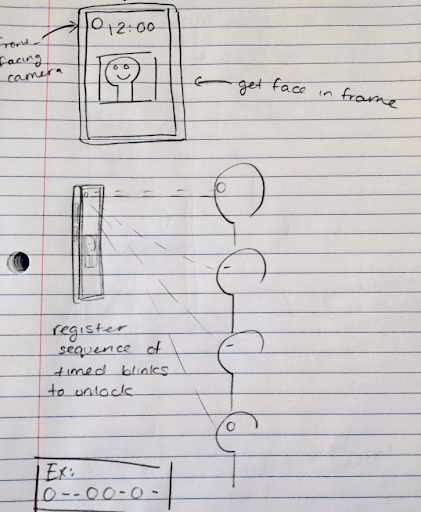 front-
facing
camera
12:00
get face in frame
register
sequence of
timed blinks
to unlock
Ex:
O--OO-O-